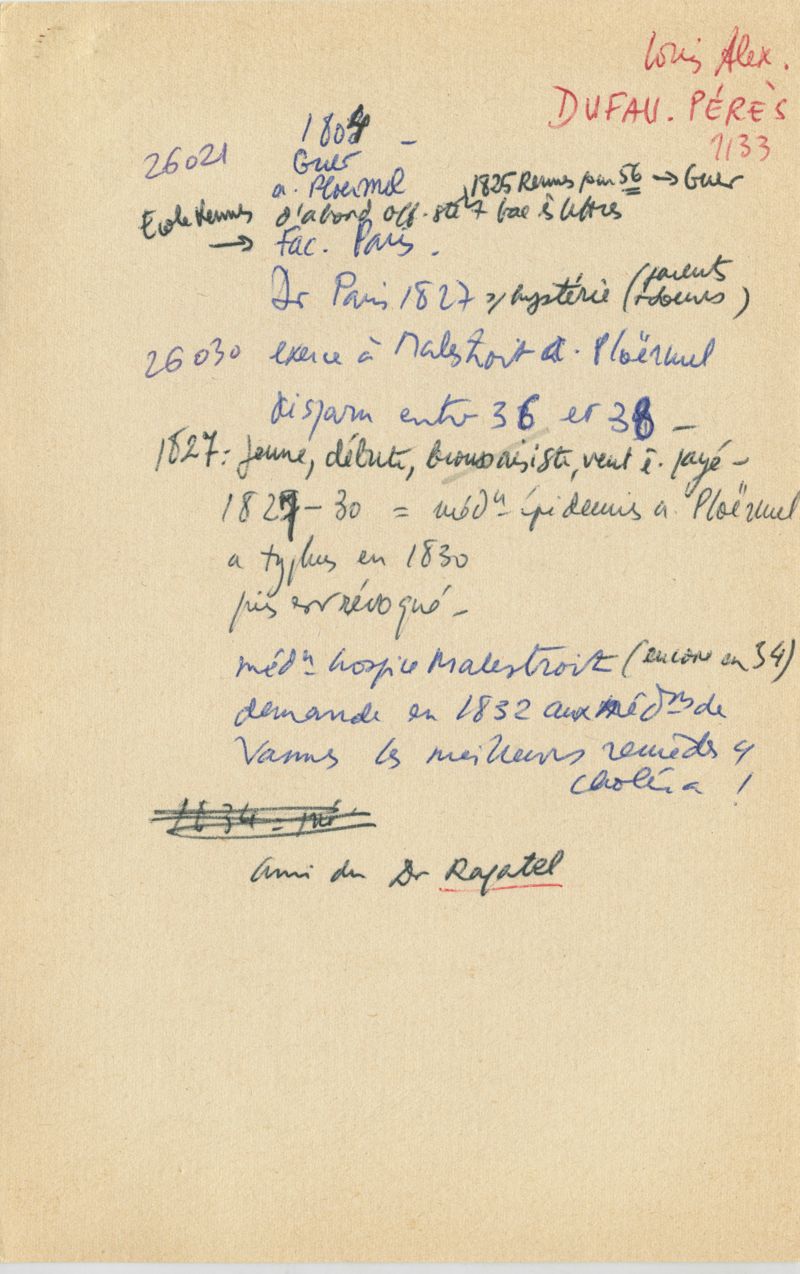 Louis Alex.
DUFAU. PÉRÈS
1133
1804 –
26021 Guer
a. Ploermel
1825 Rennes pour 56 → Guer
Ecole Rennes d'abord off. sté 7 bac ès lettres
→ Fac. Paris.
Dr Paris 1827 s/ hystérie (parents
+ soeurs)
26030 exerce à Malestroit a. Ploërmel
disparu entre 36 et 38 –
1827 : jeune, débute, broussaisiste, veut ê. payé –
1827 – 30 = médn épidémies a. Ploërmel
a typhus en 1830
puis est révoqué –
médn hospice Malestroit (encore en 34)
demande en 1832 aux médns de
Vannes les meilleurs remèdes
choléra !
1834 =
Ami du Dr Ragatel